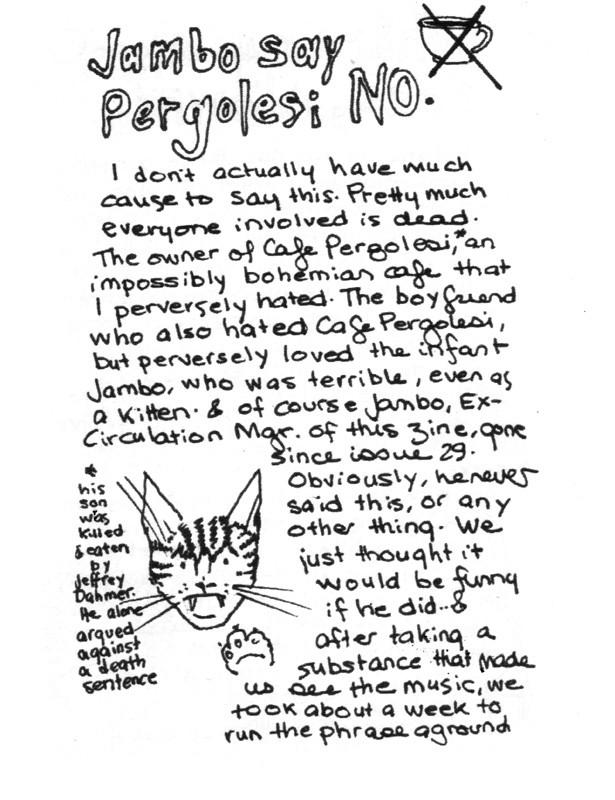 Jambo say
Pergolesi NO.
I don't actually have much
cause to say this. Pretty much
everyone involved is dead.
The owner of Cafe Pergolesi,* an
impossibly bohemian cafe that
I perversely hated. The boyfriend
who also hated Cafe Pergolesi,
but perversely loved the infant
Jambo, who was terrible, even as
a kitten. & of course Jambo, Ex-
Circulation Mgr. of this zine, gone
since issue 29.
Obviously, he never
said this, or any
other thing. We
just thought it
would be funny
if he did..&
after taking a
substance that made
us see the music, we
took about a week to
run the phrase aground
*
his
son
was
killed
& eaten
by
Jeffrey
Dahmer.
He alone
argued
against
a death
sentence